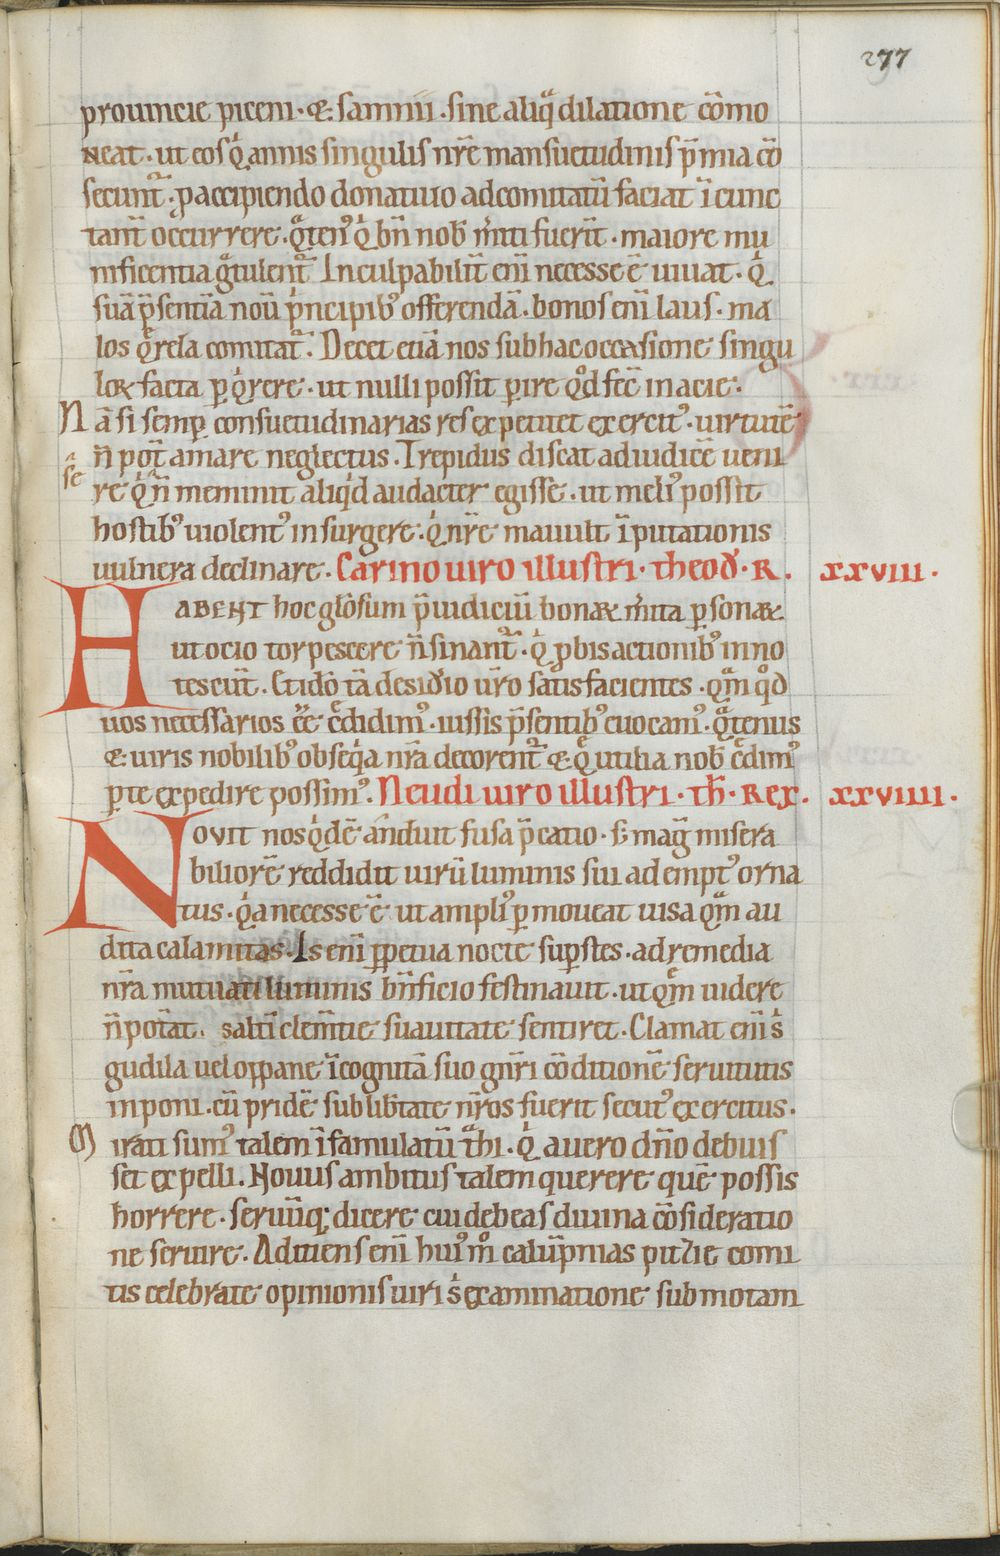 277
prouincie piceni · & samnii · sine aliq̃ dilatione cõmo
neat · ut eos q̇ annis singulis nr̃e mansuetudinis p̃mia cõ
secunt᷒ · paccipiendo donatiuo adcomitatũ faciat ĩ cunc
tant̃ occurrere · q̃ten᷒ q̇ bñ nob̃ m̃iti fuerit̃ · maiore mu
nificentia g̃tulent᷒ Inculpabilit̃ eni necesse ẽ uiuat · q̇
suã p̃sentiã noũ ṗncipib᷒ offerendã · bonos eni laus · ma
los q̃rela comitat᷒ · Decet etiã nos sub hac occasione singu
loꝝ facta ꝑ q̇rere · ut nulli possit ꝑire q̊d fec̃ in acie ·
Nã si semꝑ consuetudinarias res expetitet exercit᷒ · uirtutẽ
se ñ pot̃ amare neglectus · Trepidus discat ad iudicẽ ueni
re q̇ ñ meminit aliq̇d audacter egisse · ut meli᷒ possit
hostib᷒ uiolent᷒ insurgere · q̇ nr̃e mauult ĩputationis
uulnera declinare · Carino uiro illustri · theoď · R · xxviii ·
HABENT hoc glõsum p̃iudiciũ bonaꝝ m̃ita ꝑsonaꝝ
ut ocio torpescere ñ sinant᷒ · q̇ ꝓbis actionib᷒ inno
tescũt · Et idõ tã desiďio ur̃o satisfacientes · qm̃ q̊d
uos necessarios ẽe c̃didim᷒ · iussis p̃sentib᷒ euocam᷒ · q̃tenus
& uiris nobilib᷒ obseq̇a nr̃a decorent᷒ & q̃ utilia nob̃ c̃dim᷒
ꝑ te expedire possim᷒ · Neudi uiro illustri · th̃ · Rex · xxviiii ·
NOVIT nos q̇dẽ anduit fusa p̃catio · s; mag̃ misera
biliorẽ reddidit uirũ luminis sui adempt᷒ orna
tus · q̇a necesse ẽ ut ampli᷒ ꝑmoueat uisa qm̃ au
dita calamitas · Is eni ꝑpetua nocte suꝑstes · ad remedia
nr̃a mutuati luminis bñficio festinauit · ut q̃m uidere
ñ poterat · saltĩ clem̃tie suauitate sentiret · Clamat eni s̃
gudila uel oppane ĩcognitã suo gñri cõditionẽ seruitutis
inponi · cũ pridẽ sub lib̃tate nr̃os fuerit secut᷒ exercitus ·
Mirati sum᷒ talem ĩ famulatũ t̃hi · q̇ a uero dño debuis
set expelli · Nouus ambitus talem querere quẽ possis
horrere · seruũq; dicere cui debeas diuina cõsideratio
ne seruire · Adiciens eni hui᷒m̊ calũpnias pitzie comi
tis celebrate opinionis uiri s̃ examinatione submotam